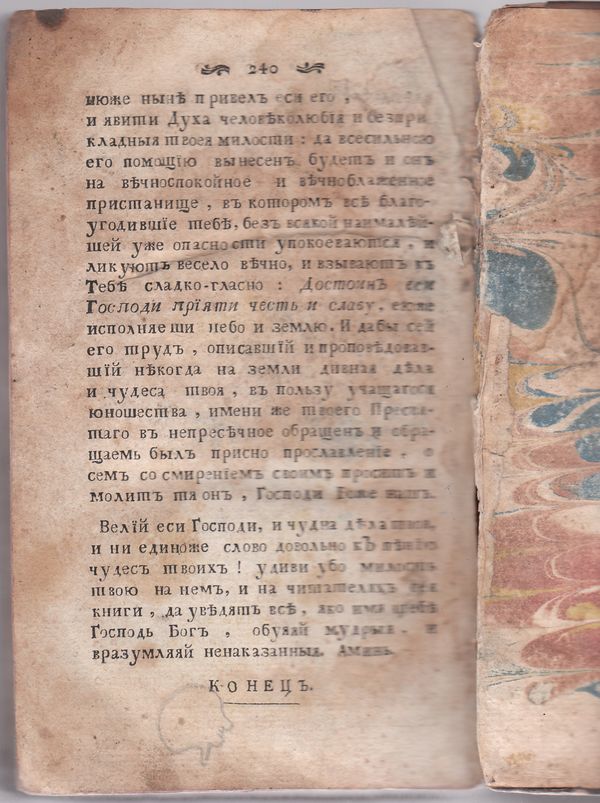 240
нюже нынѣ привелъ еси его,
и явити Духа человѣколюбія и безпри
кладныя твоея милости: да всесильною
его помощію вынесенъ будетъ и онъ
на вѣчноспокойное и вѣчноблаженное
пристанище, въ которомъ всѣ благо-
угодившіе тебѣ, безъ всякой наималѣй-
шей уже опасности упокоеваются, и
ликуютъ весело вѣчно, и взываютъ къ
Тебѣ сладко-гласно: Достоинъ еси
Господи прїяти честь и славу,
исполняеши небо и землю. И дабы сей
его трудъ, описавшій и проповѣдовав-
шїй нѣкогда на земли дивная дѣла
и чудеса твоя, въ пользу учащагося
юношества, имени же твоего Пресвя-
таго въ непресѣчное обращенъ и обра-
щаемь былъ присно прославленіе, о
семъ со смиренїемъ своимъ проситъ и
молитъ тя онъ, Господи Боже нашъ.
Велїй еси Господи, и чудна дѣла твоя,
и ни единоже слово довольно къ пѣнію
чудесъ твоихъ! удиви убо милость
твою на немъ, и на читателяхъ сея
книги, да увѣдятъ всѣ, яко имя тебѣ
Господь Богъ, обуяяй мудрыя, и
вразумляяй ненаказанныя. Аминь.
КОНЕЦЪ.